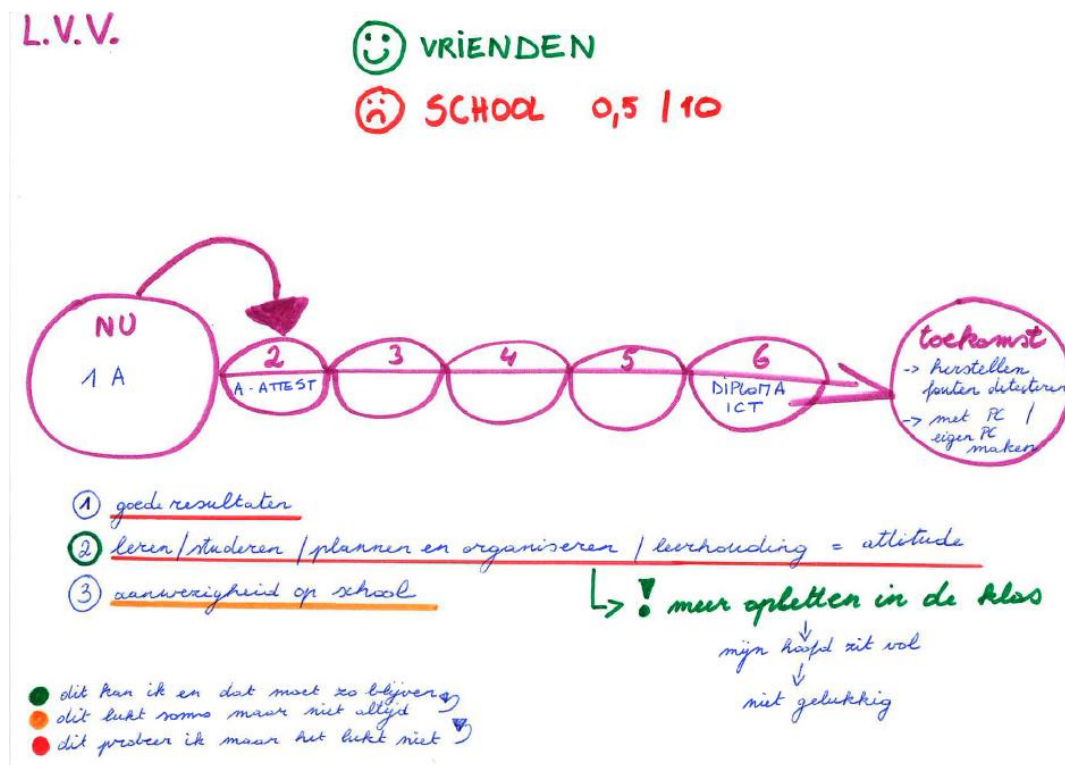 L.V.V.
VRIENDEN
SCHOOL 0,5 / 10
NU
1 A
2
A-ATTEST
3
4
5
6
DIPLOMA
ICT
toekomst
-> herstellen
fouten detecteren
-> met PC /
eigen PC
maken
1 goede resultaten
2 leren/studeren/plannen en organiseren/leerhouding = attitude
3 aanwezigheid op school
! meer opletten in de klas
mijn hoofd zit vol
niet gelukkig
dit kan ik en dat moet zo blijven
dit lukt soms maar niet altijd
dit probeer ik maar het lukt niet